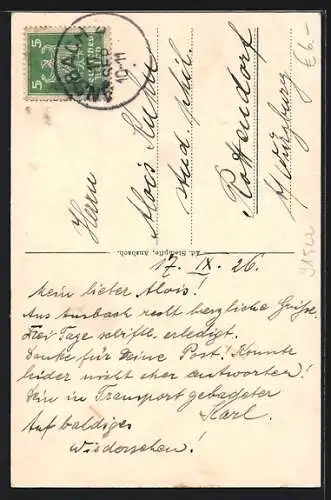 5 5
Deutsches Reich
ANSBACH
17 SEP
10-11
Herrn
Alois
stud. phil.
Rottendorf
b/Würzburg
€6.-
Ad. Stempfle, Ansbach.
17. IX. 26.
Mein lieber Alois!
Aus Ansbach recht herzliche Grüße.
Frei Tage schriftl. erledigt.
Danke für Deine Post! Konnte
leider nicht eher antworten!
Dein in Transport gebadeter
Karl.
Auf baldiges
Wiedersehen!